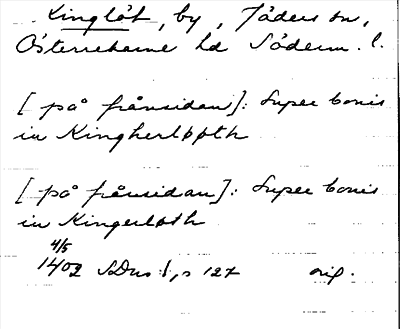 Kinglöt, by, Jäders sn,
Österrekarne hd Söderm. l.
[på frånsidan]: Super bonis
in Kingherløøth
[på frånsidan]: Super bonis
in Kingerløth
4/5
1402 SDns 1, s 127 orig.